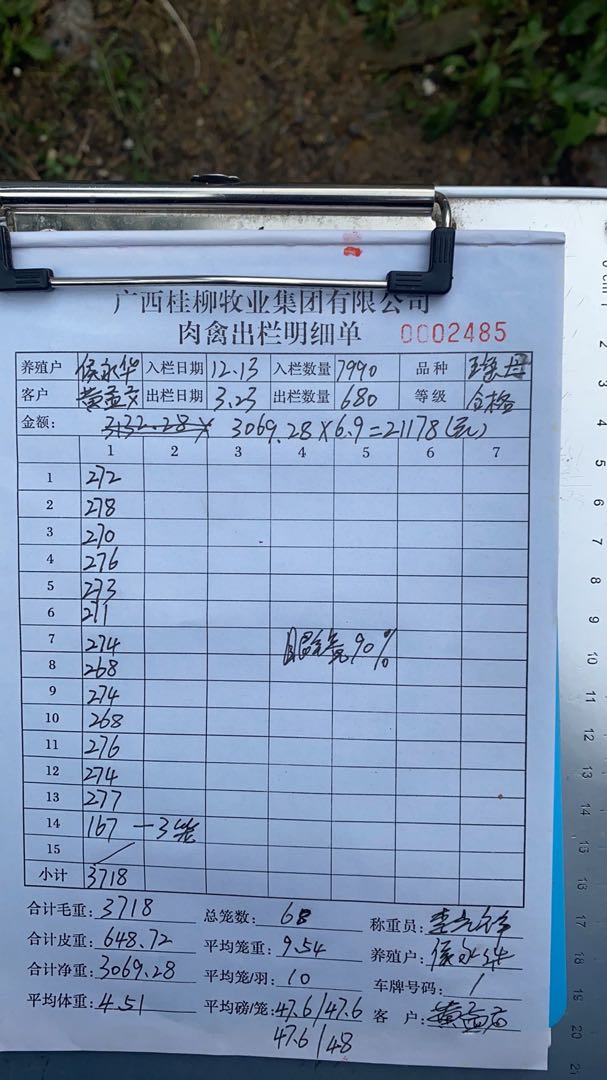 广西桂柳牧业集团有限公司
肉禽出栏明细单 0002485
养殖户 侯永华 入栏日期 12.13 入栏数量 7990 品种
客户 出栏日期 3.23 出栏数量 680 等级 合格
金额: 3132.28× 3069.28×6.9=21178(元)
1 2 3 4 5 6 7
1 272
2 278
3 270
4 276
5 273
6 271
7 274 眼镜 90%
8 268
9 274
10 268
11 276
12 274
13 277
14 167 一3笼
15
小计 3718
合计毛重: 3718 总笼数: 68 称重员:
合计皮重: 648.72 平均笼重: 9.54 养殖户: 侯永华
合计净重: 3069.28 平均笼/羽: 10 车牌号码: 1
平均体重: 4.51 平均磅/笼: 47.6/47.6 客户:
47.6/48
cm 1 2 3 4 5 6 7 8 9 10 11 12 13 14 15 16 17 18 19 20